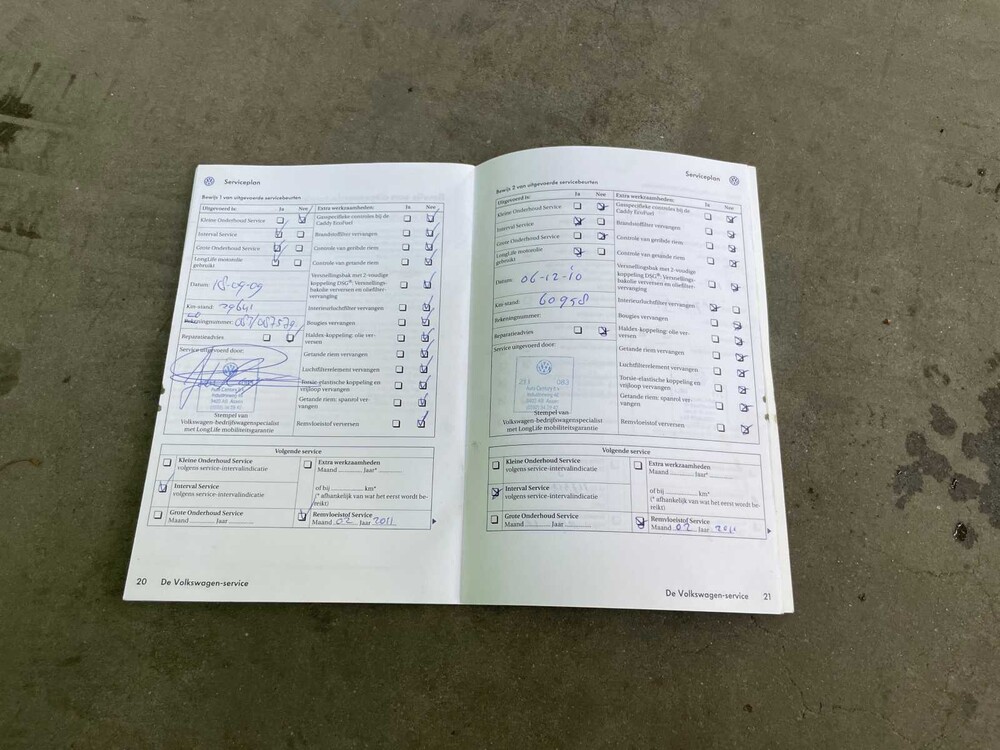 Serviceplan
Bewijs 1 van uitgevoerde servicebeurten
Uitgevoerd is: Ja Nee Extra werkzaamheden: Ja Nee
Kleine Onderhoud Service
Interval Service
Grote Onderhoud Service
LongLife motorolie
gebruikt
Datum: 18-09-09
Km-stand:
Rekeningnummer:
Reparatieadvies
Service uitgevoerd door:
Stempel van
Volkswagen-bedrijfswagenspecialist
met LongLife mobiliteitsgarantie
Gasspecifieke controles bij de
Caddy EcoFuel
Brandstoffilter vervangen
Controle van geribde riem
Controle van getande riem
Versnellingsbak met 2-voudige
koppeling DSG®: Versnellings-
bakolie verversen en oliefilter-
vervanging
Interieurluchtfilter vervangen
Bougies vervangen
Haldex-koppeling: olie ver-
versen
Getande riem vervangen
Luchtfilterelement vervangen
Torsie-elastische koppeling en
vrijloop vervangen
Getande riem: spanrol ver-
vangen
Remvloeistof verversen
Volgende service
Kleine Onderhoud Service
volgens service-intervalindicatie
Interval Service
volgens service-intervalindicatie
Grote Onderhoud Service
Maand Jaar
Extra werkzaamheden
Maand Jaar*
of bij km*
(* afhankelijk van wat het eerst wordt be-
reikt)
Remvloeistof Service
Maand 02 Jaar 2011
20 De Volkswagen-service
Serviceplan
Bewijs 2 van uitgevoerde servicebeurten
Uitgevoerd is: Ja Nee Extra werkzaamheden: Ja Nee
Kleine Onderhoud Service
Interval Service
Grote Onderhoud Service
LongLife motorolie
gebruikt
Datum: 06-12-10
Km-stand: 60958
Rekeningnummer:
Reparatieadvies
Service uitgevoerd door:
Stempel van
Volkswagen-bedrijfswagenspecialist
met LongLife mobiliteitsgarantie
Gasspecifieke controles bij de
Caddy EcoFuel
Brandstoffilter vervangen
Controle van geribde riem
Controle van getande riem
Versnellingsbak met 2-voudige
koppeling DSG®: Versnellings-
bakolie verversen en oliefilter-
vervanging
Interieurluchtfilter vervangen
Bougies vervangen
Haldex-koppeling: olie ver-
versen
Getande riem vervangen
Luchtfilterelement vervangen
Torsie-elastische koppeling en
vrijloop vervangen
Getande riem: spanrol ver-
vangen
Remvloeistof verversen
Volgende service
Kleine Onderhoud Service
volgens service-intervalindicatie
Interval Service
volgens service-intervalindicatie
Grote Onderhoud Service
Maand Jaar
Extra werkzaamheden
Maand Jaar*
of bij km*
(* afhankelijk van wat het eerst wordt be-
reikt)
Remvloeistof Service
Maand 02 Jaar
De Volkswagen-service 21